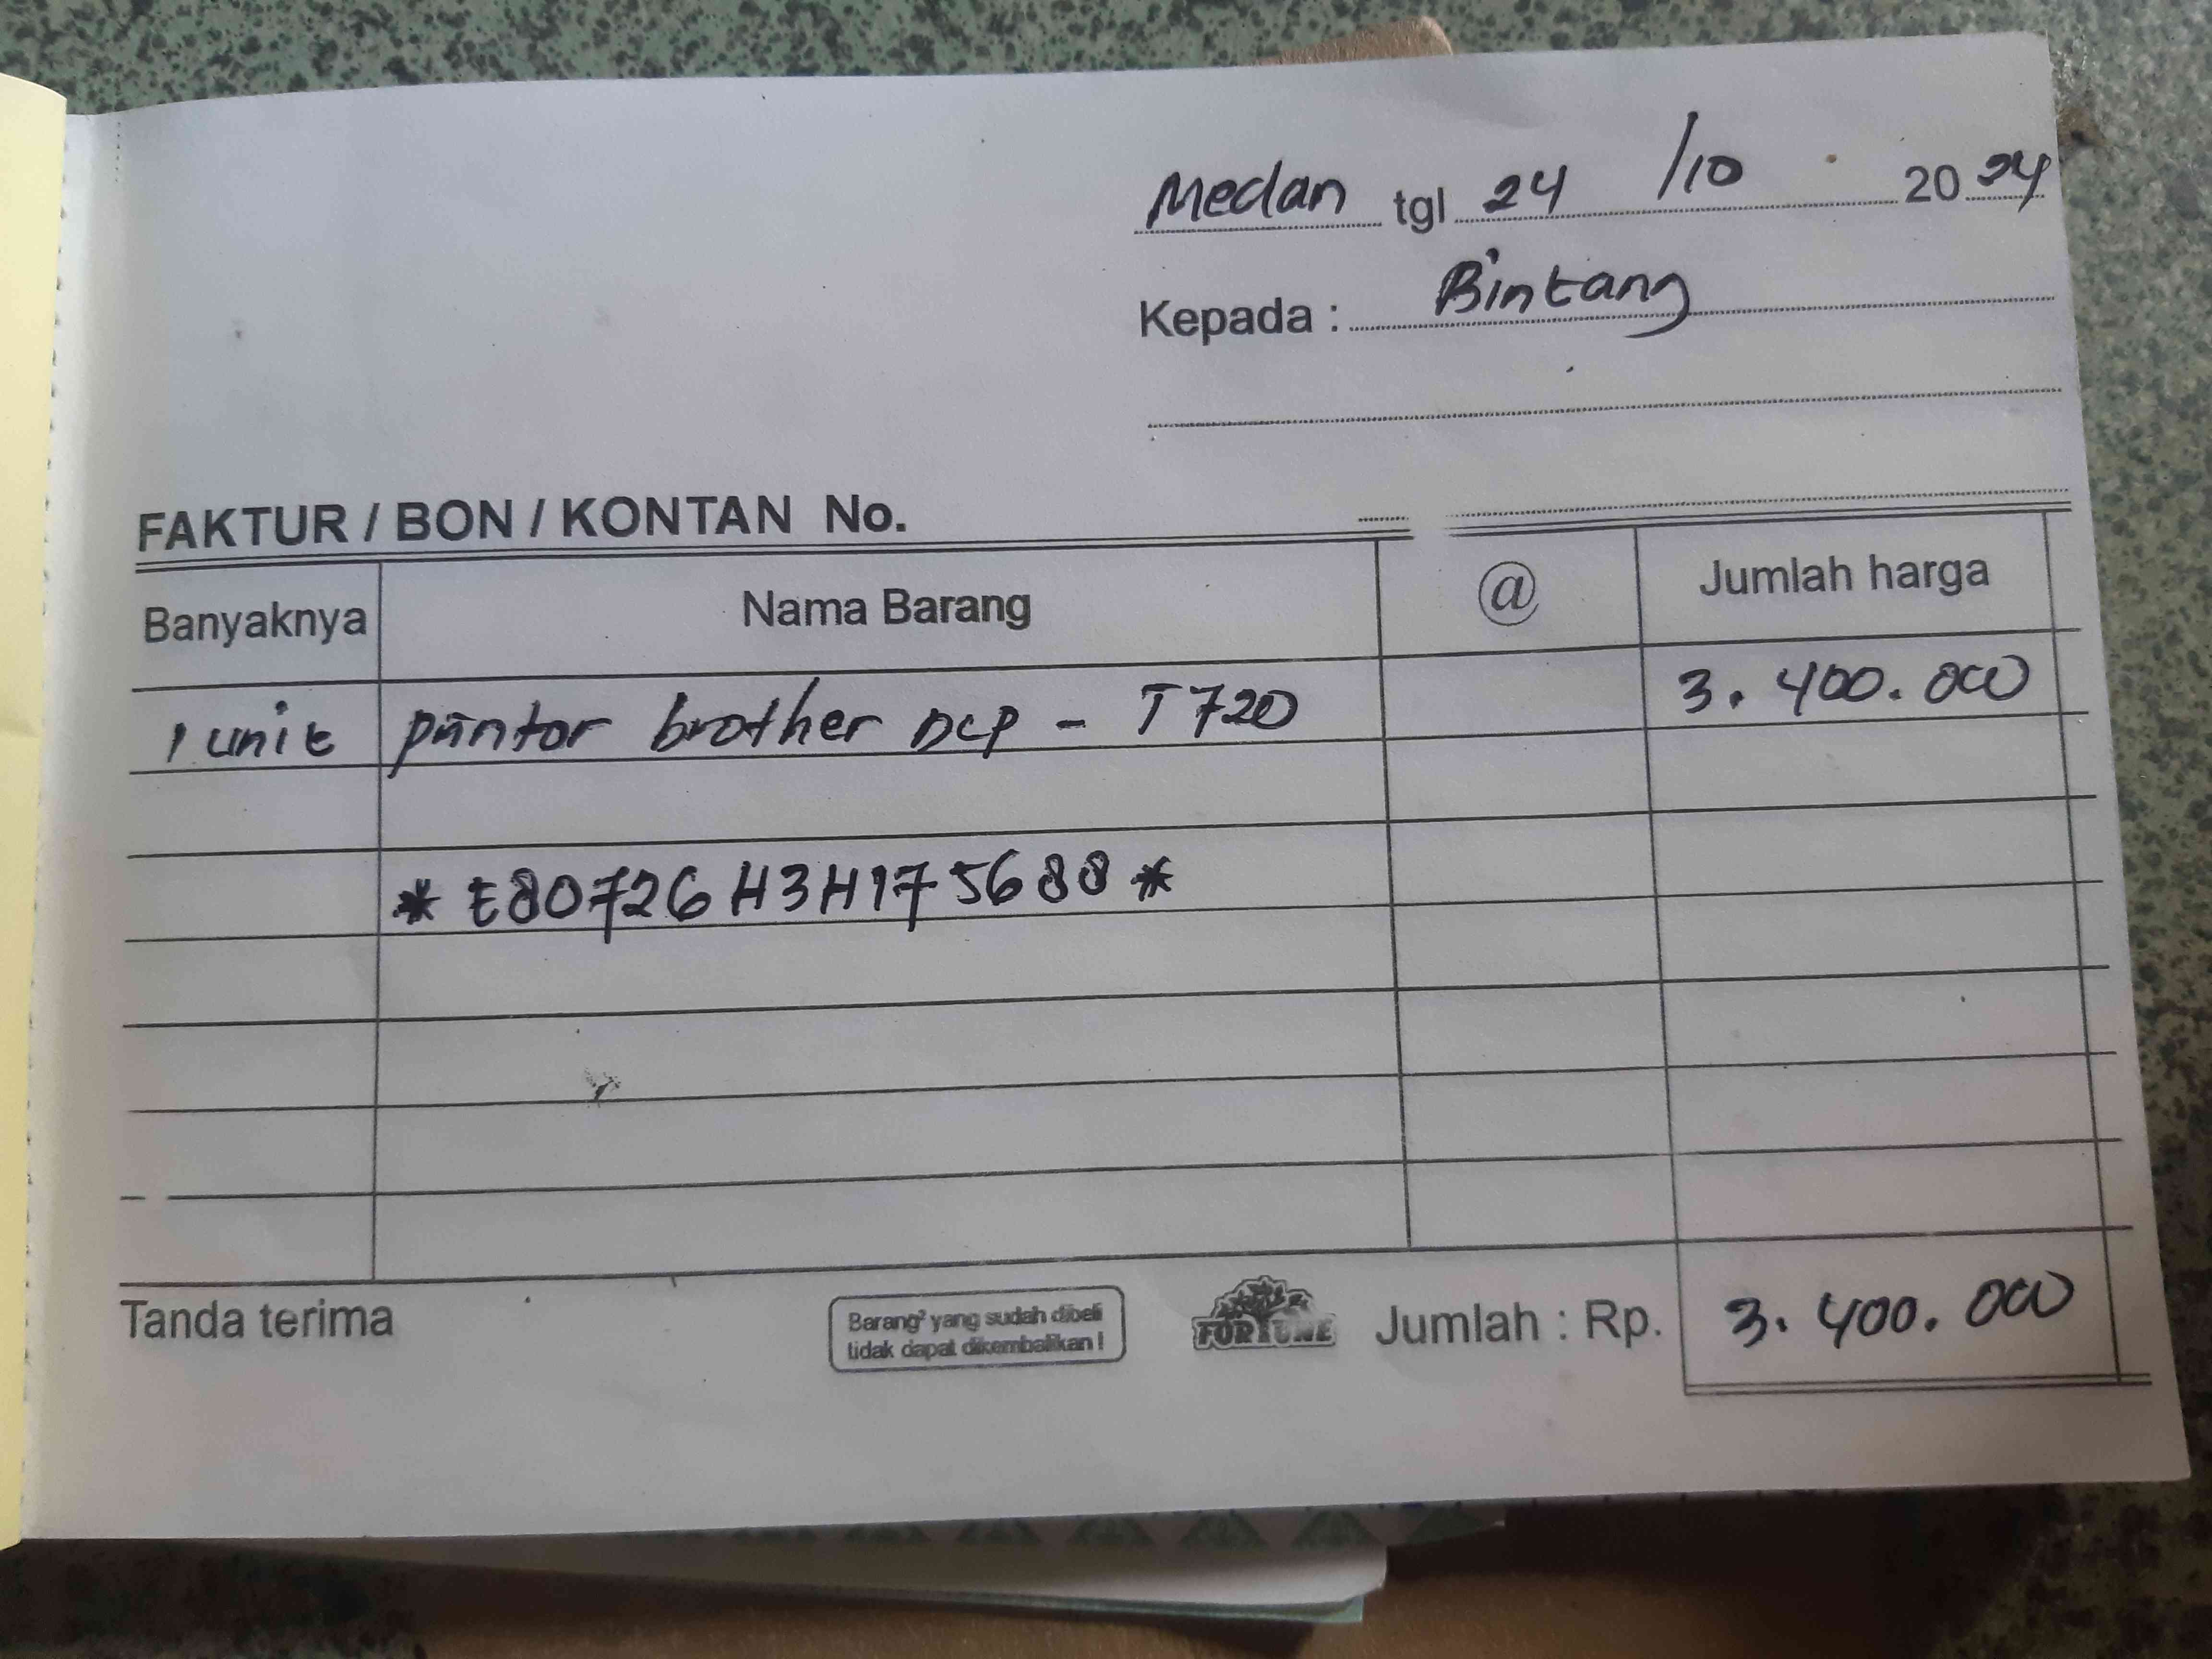 Medan tgl 24 /10 2024
Kepada : Bintang
FAKTUR / BON / KONTAN No.
Banyaknya Nama Barang @ Jumlah harga
1 unit printor brother DCP - T720 3.400.000
* E80726H3H175688 *
Tanda terima
Barang² yang sudah dibeli
tidak dapat dikembalikan !
FORTUNE
Jumlah : Rp. 3.400.000